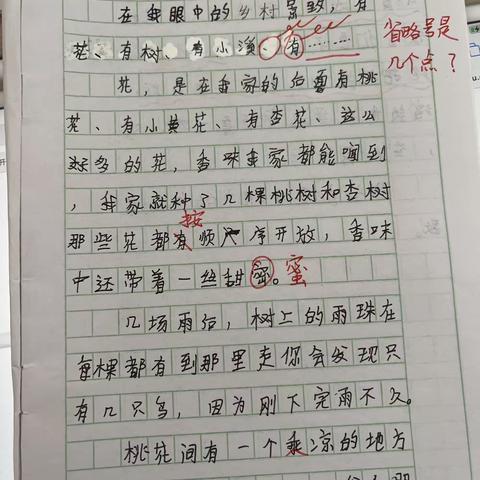 在我眼中的乡村景致，有
花、有树、有小溪、有………
省略号是
几个点？
花，是在我家的后面有桃
花、有小黄花、有杏花、这么
好多的花，香味我家都能闻到
，我家就种了几棵桃树和杏树
按
那些花都有顺序开放，香味
中还带着一丝甜密。蜜
几场雨后，树上的雨珠在
每棵都有到那里走你会发现只
有几只鸟，因为刚下完雨不久。
桃花间有一个乘凉的地方